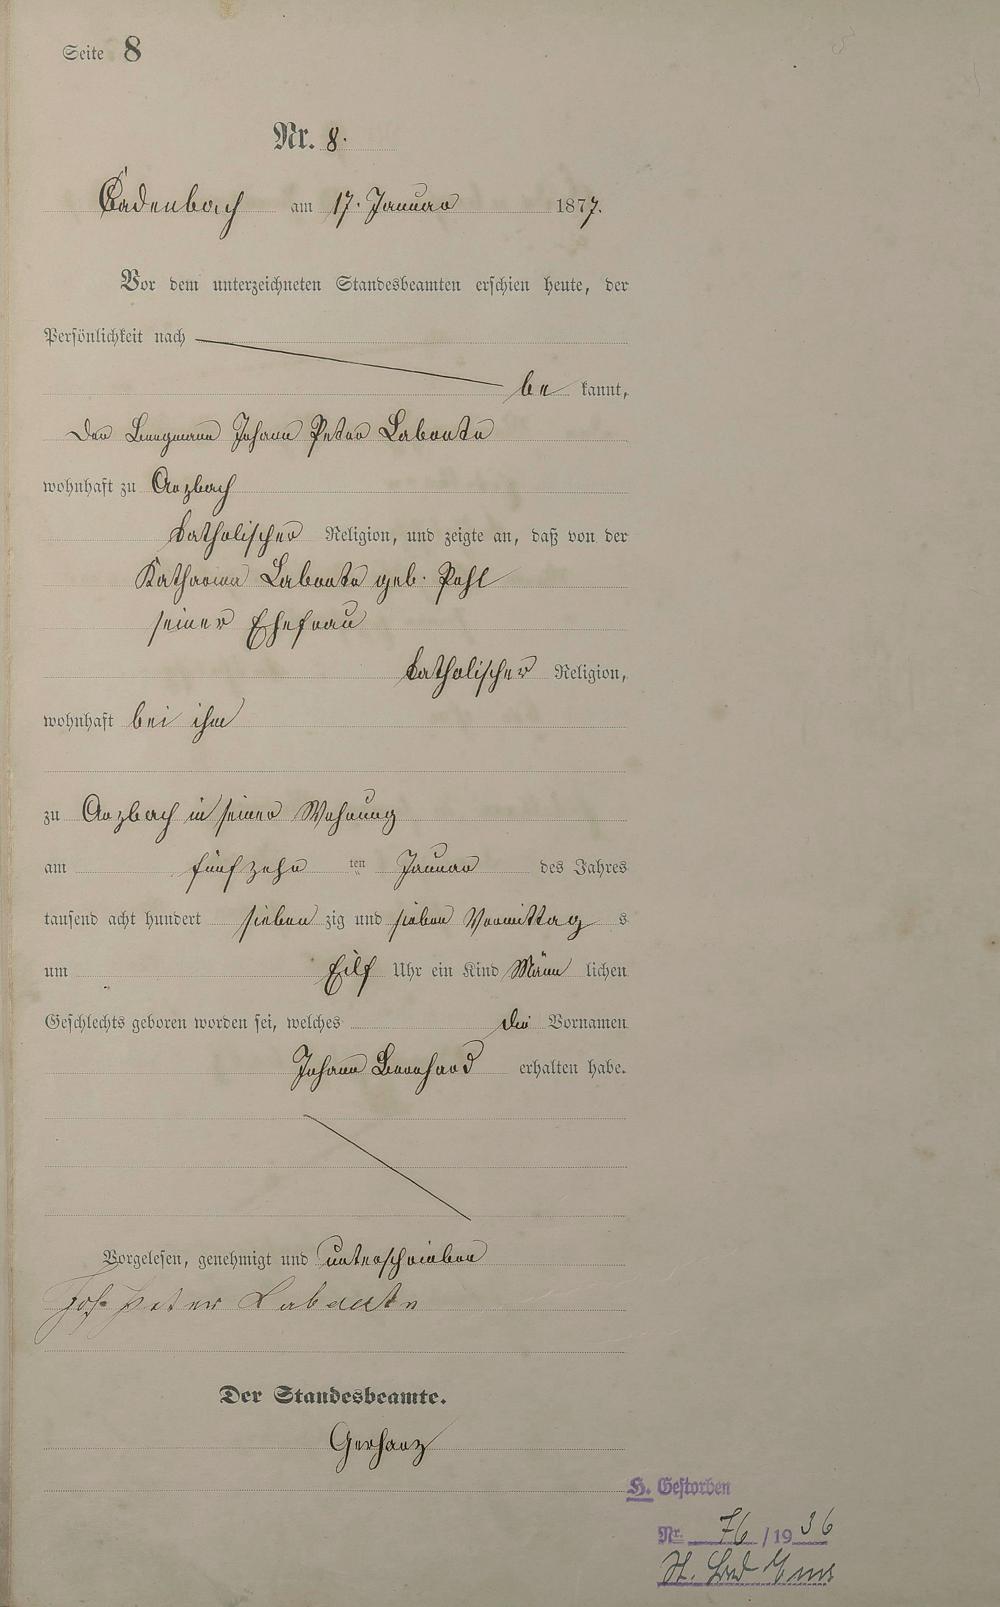 Seite 8
Nr. 8.
Cadenbach am 17. Januar 1877.
Vor dem unterzeichneten Standesbeamten erschien heute, der
Persönlichkeit nach
be kannt,
Der Bergmann Johann Peter Labonte
wohnhaft zu Arzbach
katholischer Religion, und zeigte an, daß von der
Katharina Labonte geb. Pehl
seiner Ehefrau
katholischer Religion,
wohnhaft bei ihm
zu Arzbach in seiner Wohnung
am fünfzehn ten Januar des Jahres
tausend acht hundert sieben zig und sieben Vormittag s
um Eilf Uhr ein Kind Männ lichen
Geschlechts geboren worden sei, welches die Vornamen
Johann Bernhard erhalten habe.
Vorgelesen, genehmigt und unterschrieben
Joh Peter Labonte
Der Standesbeamte.
Gerharz
H. Gestorben
Nr. 76 / 1936
St. Bad Ems